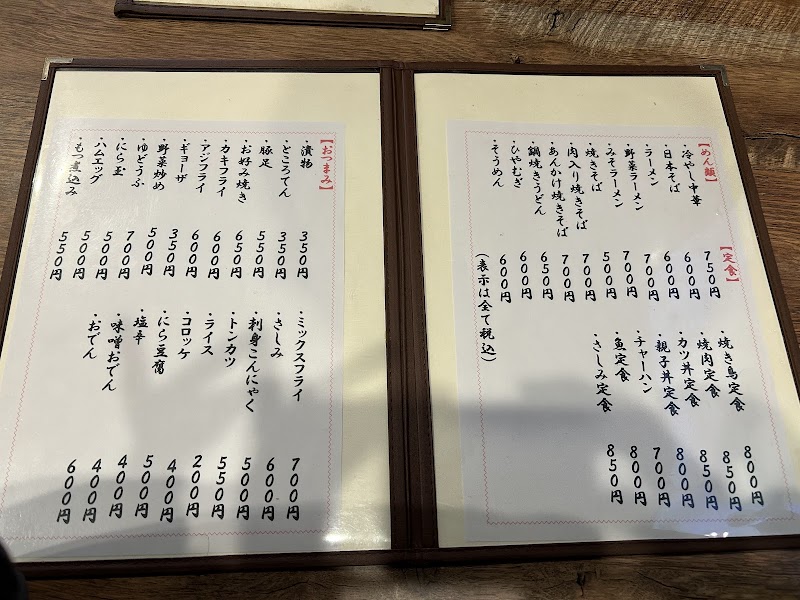 【めん類】
・冷やし中華 750円
・日本そば 600円
・ラーメン 600円
・野菜ラーメン 700円
・みそラーメン 700円
・焼きそば 500円
・肉入り焼きそば 700円
・あんかけ焼きそば 700円
・鍋焼きうどん 650円
・ひやむぎ 600円
・そうめん 600円
【定食】
・焼き鳥定食 800円
・焼肉定食 850円
・カツ丼定食 850円
・親子丼定食 800円
・チャーハン 700円
・魚定食 800円
・さしみ定食 850円
(表示は全て税込)
【おつまみ】
・漬物 350円
・ところてん 350円
・豚足 550円
・お好み焼き 650円
・カキフライ 600円
・アジフライ 600円
・ギョーザ 350円
・野菜炒め 500円
・ゆどうふ 700円
・にら玉 500円
・ハムエッグ 500円
・もつ煮込み 550円
・ミックスフライ 700円
・さしみ 600円
・刺身こんにゃく 500円
・トンカツ 550円
・ライス 200円
・コロッケ 400円
・にら豆腐 500円
・塩辛 400円
・味噌おでん 400円
・おでん 600円